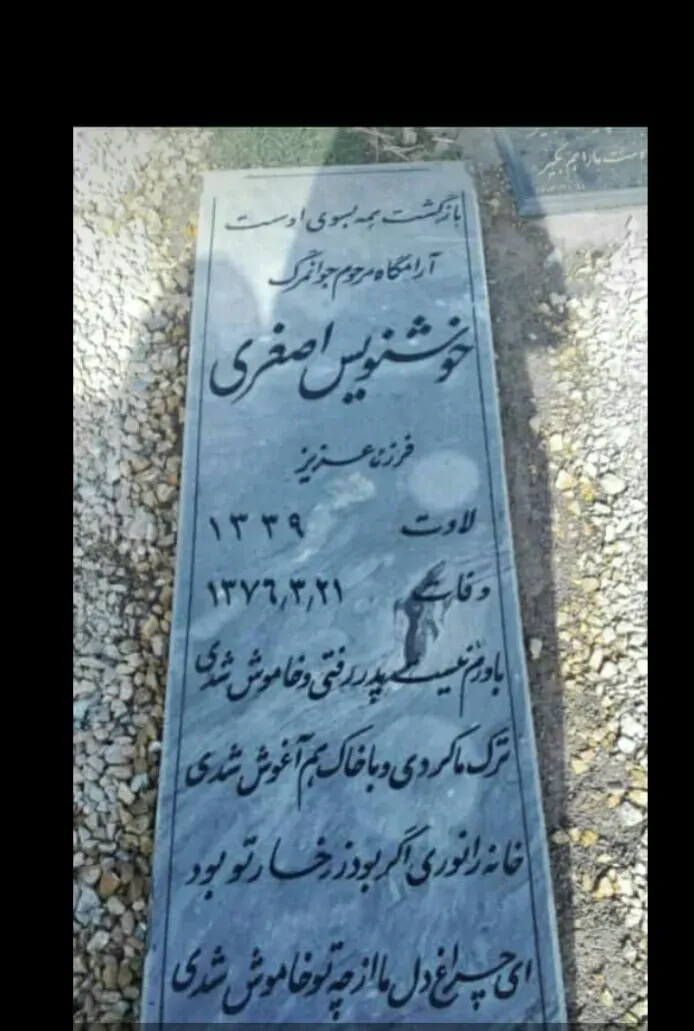 ست ما را هم بگیر
بازگشت همه بسوی اوست
آرامگاه مرحوم جوانمرگ
خوشنویس اصغری
فرزند عزیز
لادت ۱۳۳۹
وفات ۱۳۷۶٫۳٫۲۱
باورم نیست پدر رفتی و خاموش شدی
ترک ما کردی و با خاک هم آغوش شدی
خانه را نوری اگر بود ز رخسار تو بود
ای چراغ دل ما از چه تو خاموش شدی